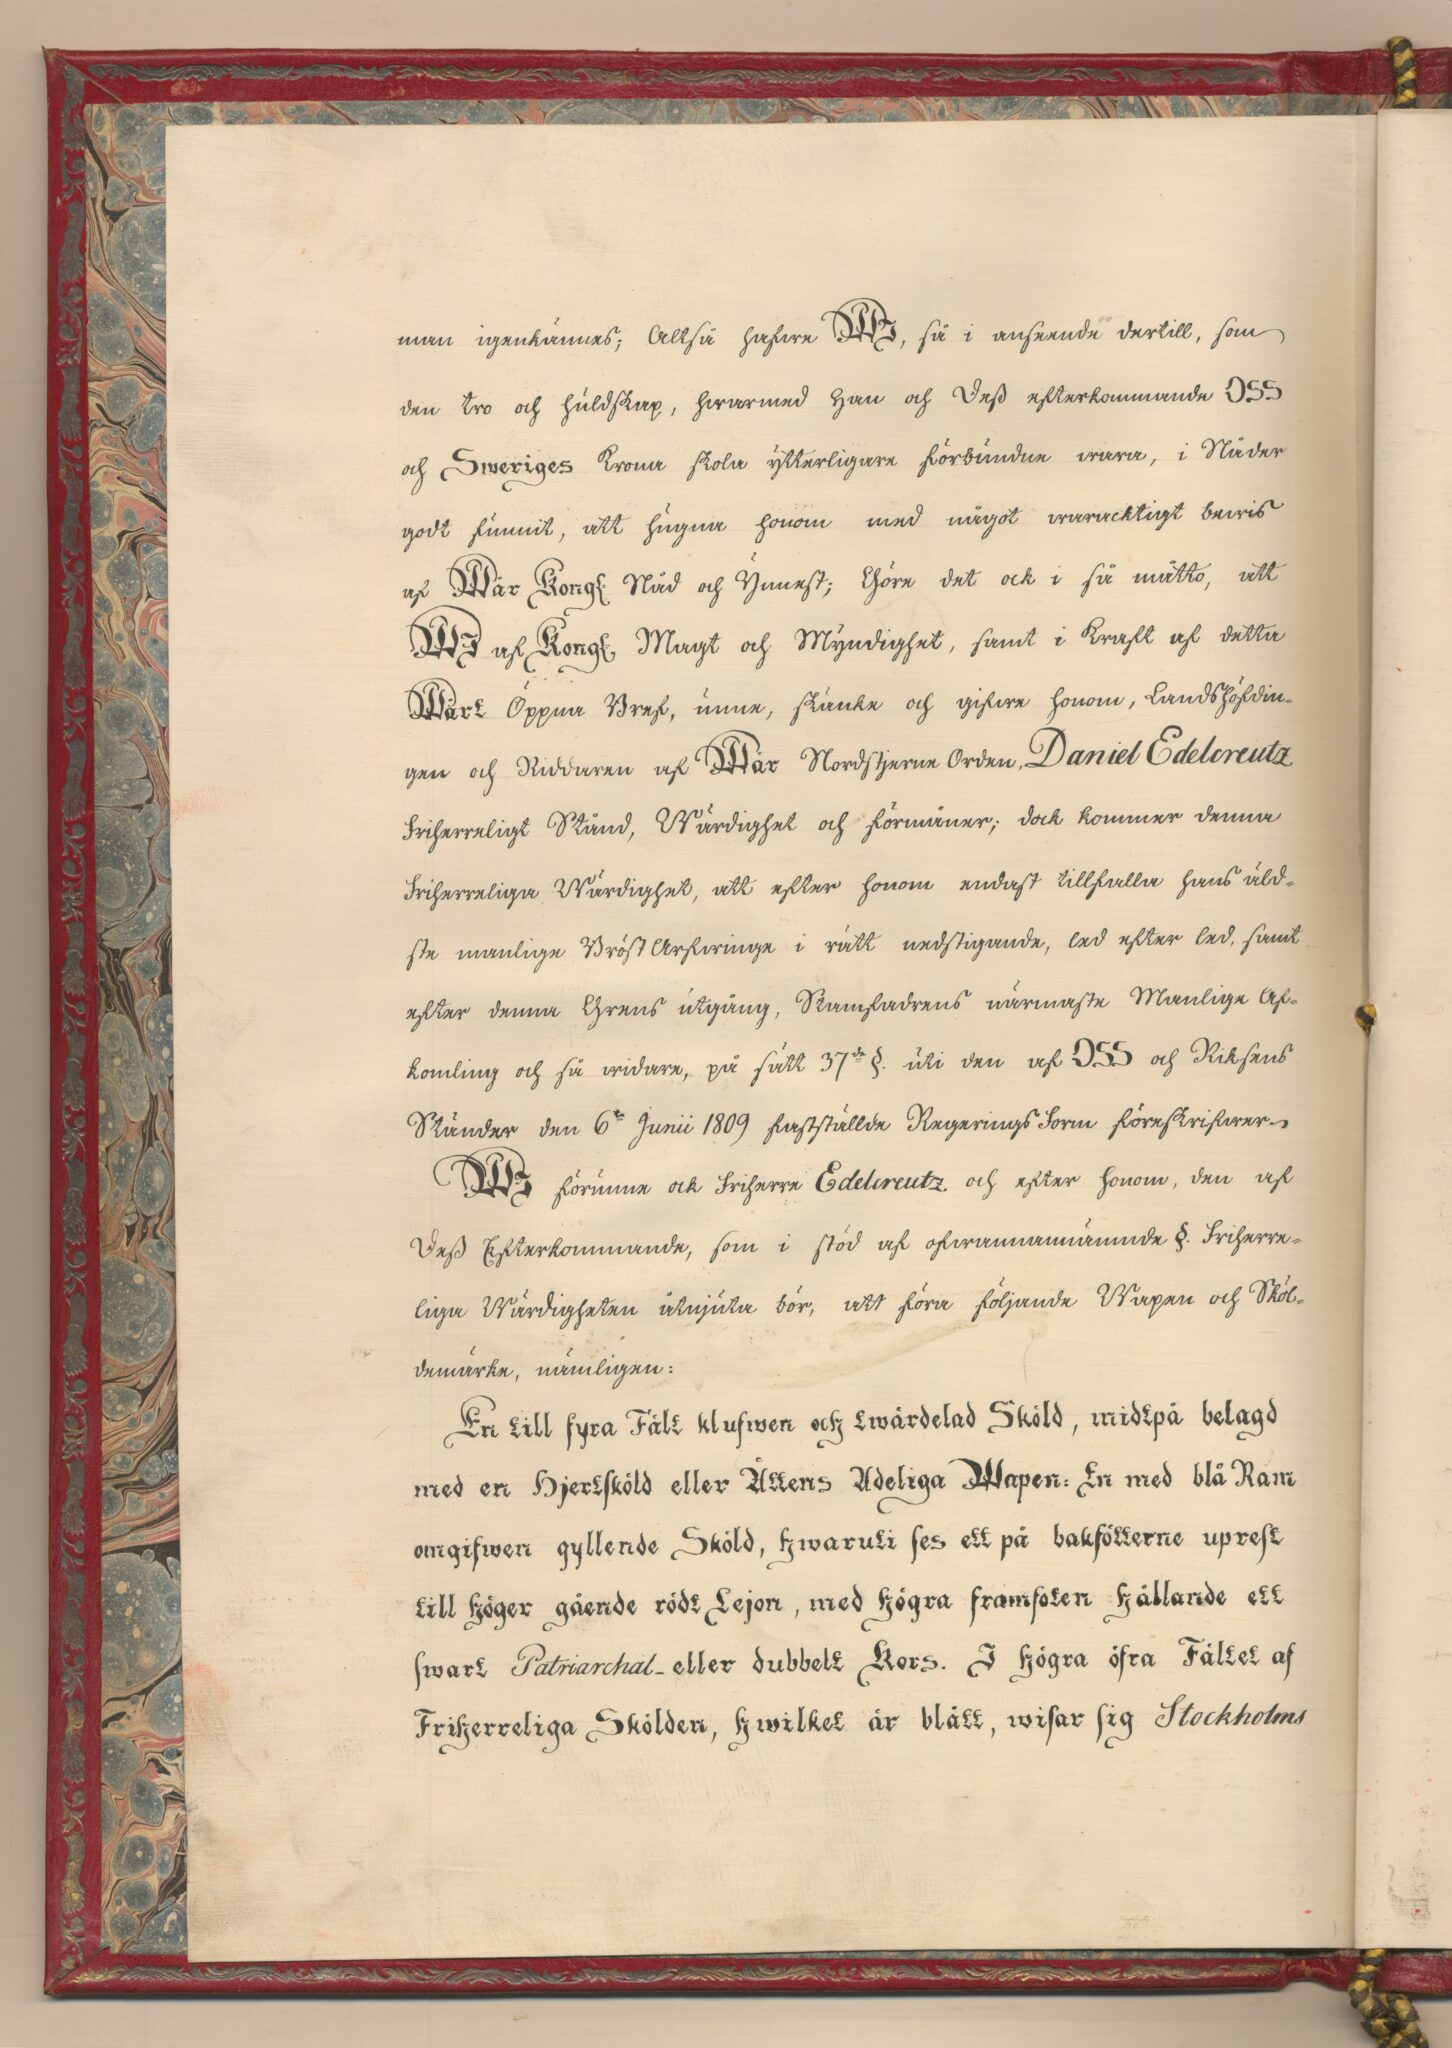 man igenkännes; Altså hafwe WJ, så i anseende dertill, som
den tro och huldskap, hwarmed Han och Deß efterkommande OSS
och Sweriges Krona skola ytterligare förbundne wara, i Nåder
godt funnit, att hugna honom med något waracktigt bewis
af Wår Kongl. Nåd och Ynnest; Göre det ock i så måtto, att
WJ af Kongl. Magt och Myndighet, samt i Kraft af detta
Wårt Öppna Bref, unne, skänke och gifwe honom, Landshöfdin-
gen och Riddaren af Wår Nordstjerne Orden, Daniel Edelcreutz
Friherreligt Stånd, Wärdighet och förmåner; dock kommer denna
Friherreliga Wärdighet, att efter honom endast tillfalla hans äld-
ste manlige BröstArfwinge i rätt nedstigande, led efter led, samt
efter denna Grens utgång, Stamfadrens närmaste Manlige Af-
komling och så widare, på sätt 37de §. uti den af OSS och Riksens
Ständer den 6te Junii 1809 fastställde RegeringsForm föreskrifwer.
WJ förunne ock Friherre Edelcreutz och efter honom, den af
Deß Efterkommande, som i stöd af ofwannämnde §. Friherre-
liga Wärdigheten åtnjuta bör, att föra följande Wapen och Sköl-
demärke, nämligen:
En till fyra Fält klufwen och twärdelad Sköld, midtpå belagd
med en Hjertsköld eller Ättens Adeliga Wapen: En med blå Ram
omgifwen gyllende Sköld, hwaruti ses ett på bakfötterne uprest
till höger gående rödt Lejon, med högra framfoten hållande ett
swart Patriarchal- eller dubbelt Kors. I högra öfra Fältet af
Friherreliga Skölden, hwilket är blått, wisar sig Stockholms